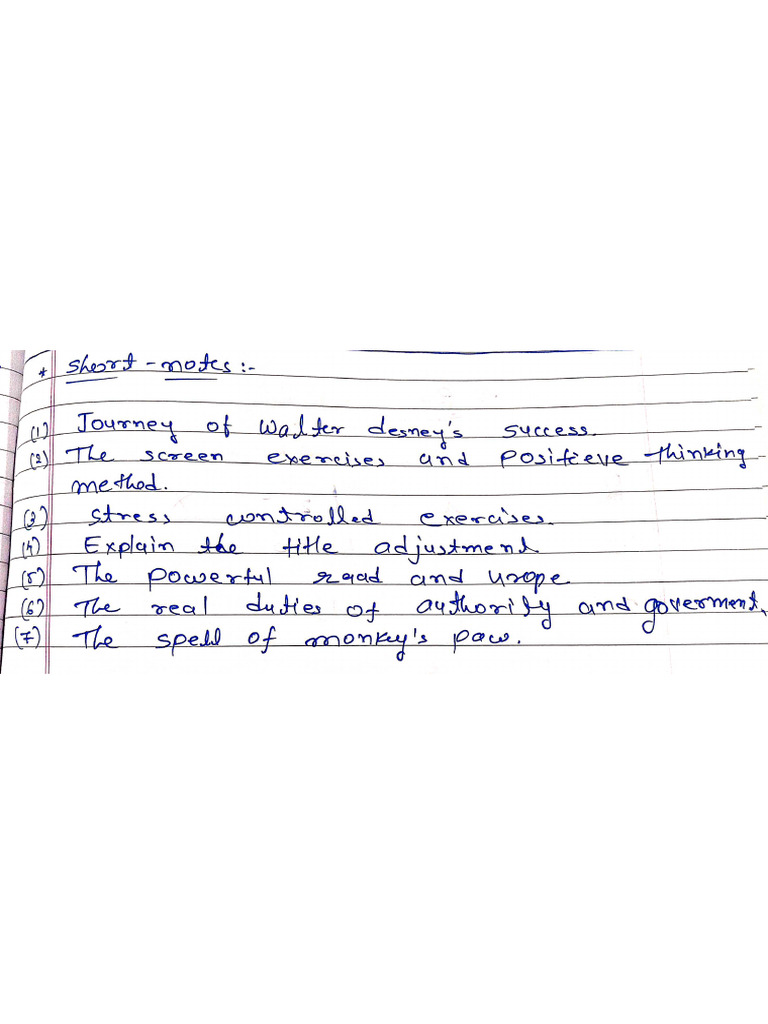 * Short-notes:-
(1) Journey of Walter desney's success.
(2) The screen exercises and positieve thinking
method.
(3) stress controlled exercises.
(4) Explain the title adjustment
(5) The powerful raad and urope
(6) The real duties of authority and goverment.
(7) The spell of monkey's paw.